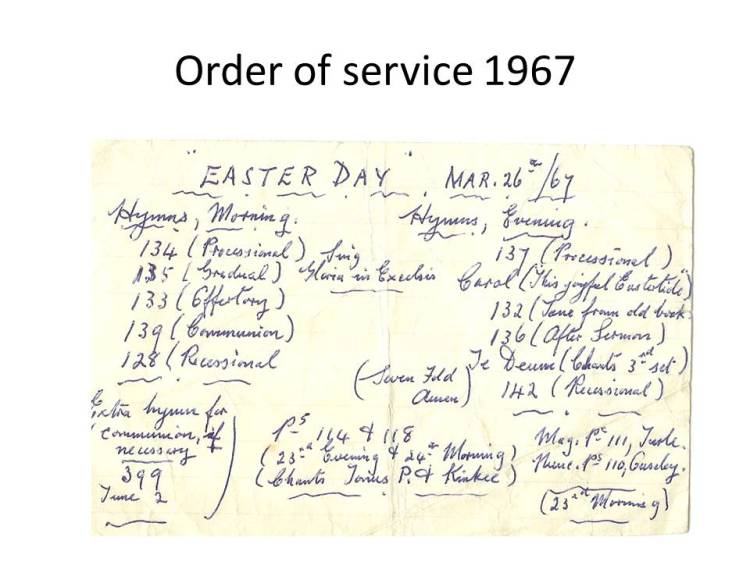 Order of service 1967
"EASTER DAY" MAR. 26th/67
Hymns, Morning.
134 (Processional) Sing
135 (Gradual) Gloria in Excelsis
133 (Offertory)
139 (Communion)
128 (Recessional
Hymns, Evening.
137 (Processional)
Carol ("This joyful Eastertide")
132 (Tune from old book
136 (After Sermon)
Te Deum (Chants 3rd set)
(Seven Fold Amen)
142 (Recessional)
Extra hymn for
communion, if
necessary
399
Tune 2
Ps 114 & 118
(23rd Evening & 24th Morning)
(Chants Tonus P. &
Mag. Pe 111, Turle.
Nunc. Ps 110,
(23rd Morning)